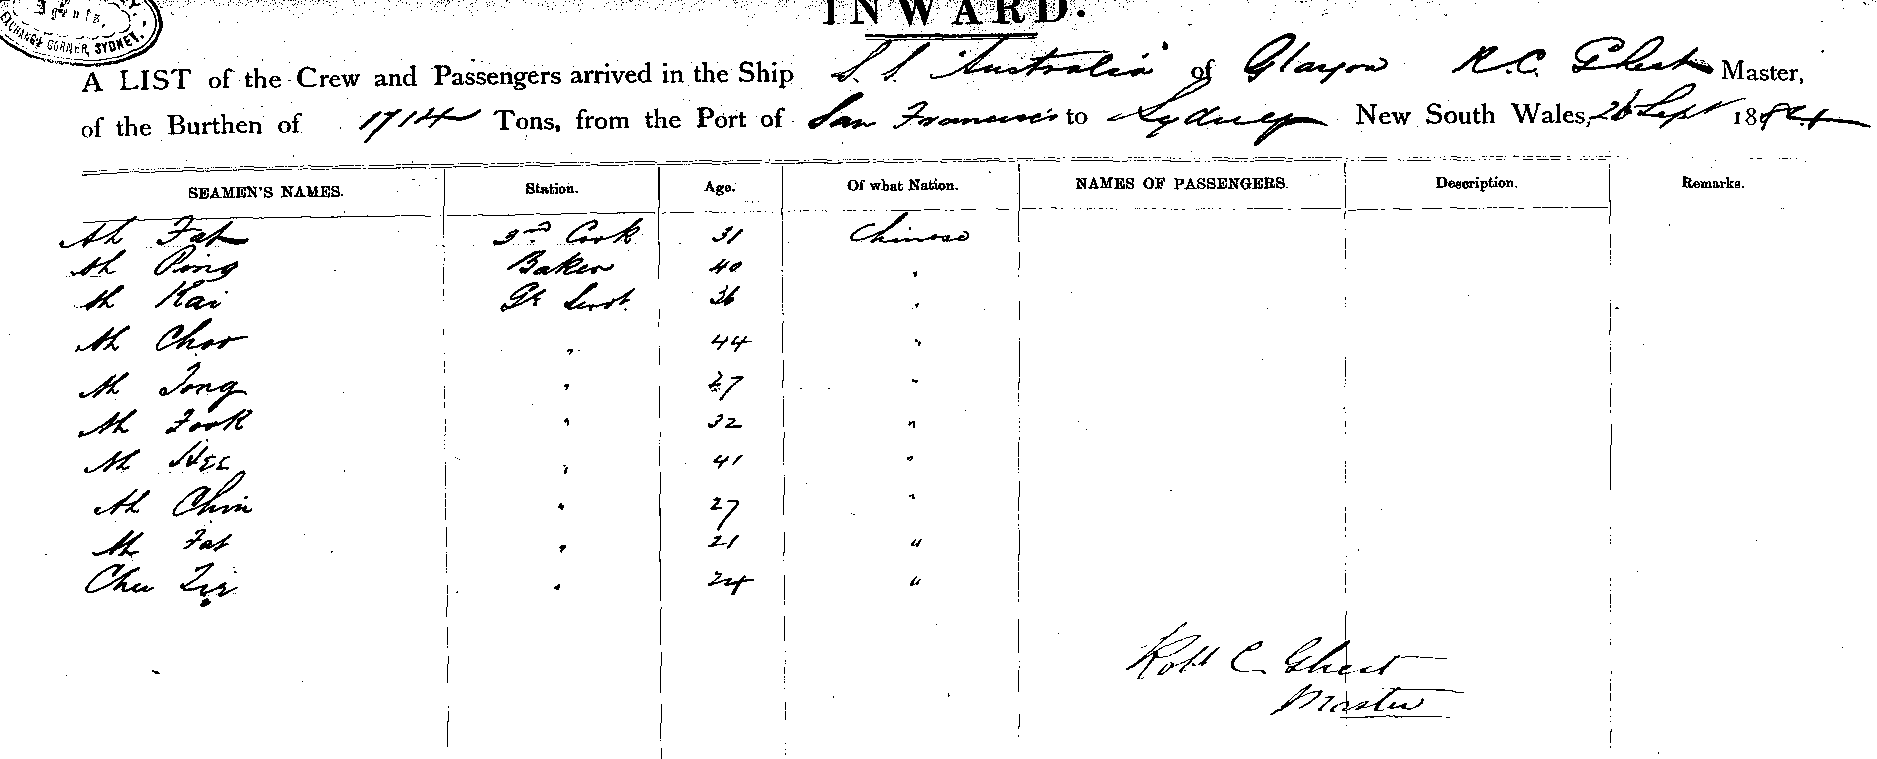 Agents,
EXCHANGE CORNER, SYDNEY.
INWARD.
A LIST of the Crew and Passengers arrived in the Ship S.S. Australia of Glasgow R.C. Ghest Master,
of the Burthen of 1714 Tons, from the Port of San Francisco to Sydney New South Wales, 26 Sept 1884
SEAMEN'S NAMES. Station. Age. Of what Nation. NAMES OF PASSENGERS. Description. Remarks.
Ah Fat 3rd Cook 31 Chinese
Ah Ping Baker 40 "
Ah Kai Gr Servt. 36 "
Ah Choo " 44 "
Ah Tong " 27 "
Ah Fook " 32 "
Ah Hee " 41 "
Ah Chin " 27 "
Ah Fat " 21 "
Chu " 24 "
Robt C Ghest
Master